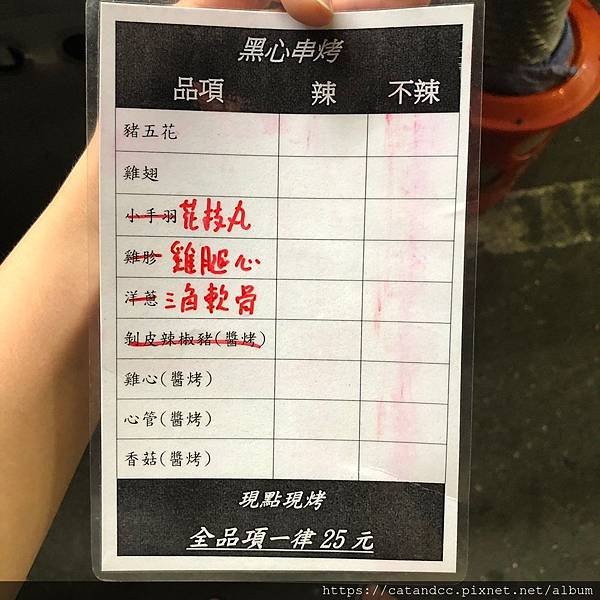 黑心串烤
品項 辣 不辣
豬五花
雞翅
小手羽 花技丸
雞胗 雞腿心
洋蔥 三角軟骨
剝皮辣椒豬(醬烤)
雞心(醬烤)
心管(醬烤)
香菇(醬烤)
現點現烤
全品項一律 25 元
https://catandcc.pixnet.net/album